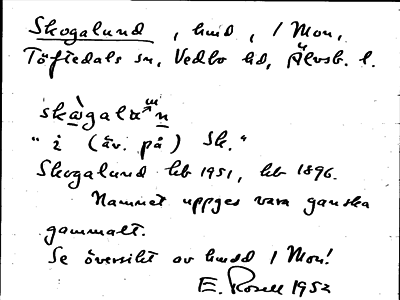 Skogalund, hmd, 1 Mon,
Töftedals sn, Vedbo hd, Älvsb. l.
skògalun
"i (äv. på) Sk."
Skogalund kb 1951, kb 1896.
Namnet uppges vara ganska
gammalt.
Se översikt av hmdd 1 Mon!
E. Rosell 1952